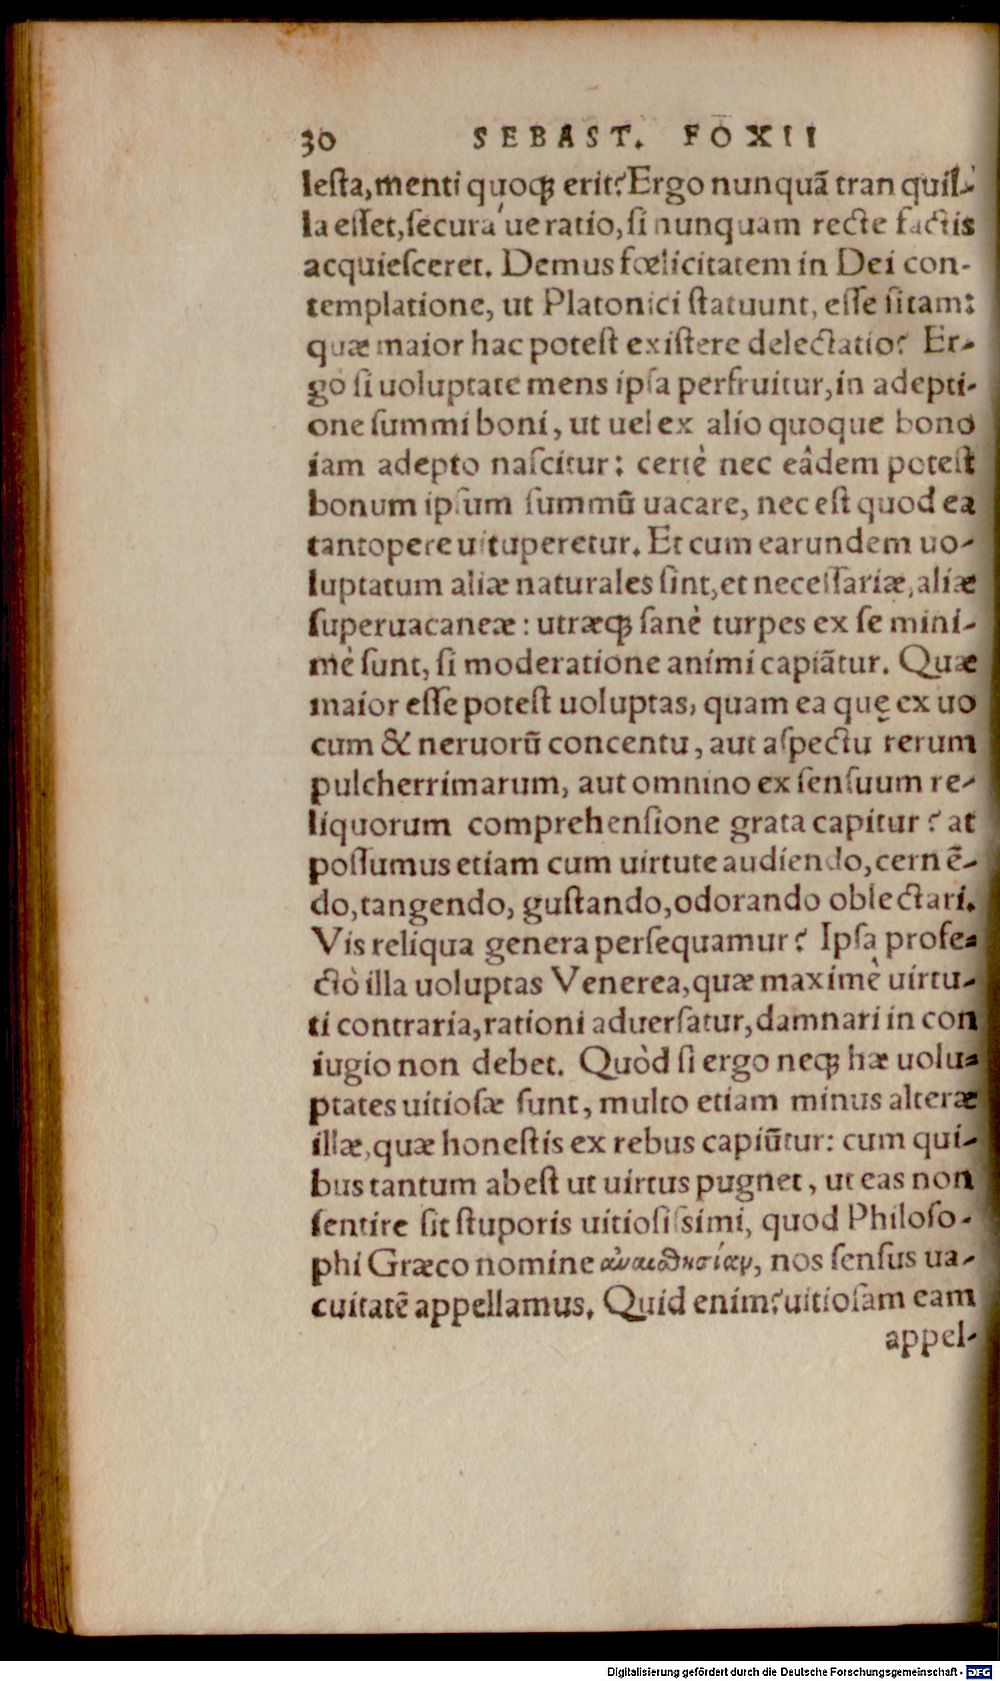 30 SEBAST. FOXII
lesta, menti quoq; erit? Ergo nunquã tranquil-
la esset, secura ue ratio, si nunquam recte factis
acquiesceret. Demus fœlicitatem in Dei con-
templatione, ut Platonici statuunt, esse sitam:
quæ maior hac potest existere delectatio? Er-
go si uoluptate mens ipsa perfruitur, in adepti-
one summi boni, ut uel ex alio quoque bono
iam adepto nascitur: certè nec eâdem potest
bonum ipsum summũ uacare, nec est quod ea
tantopere uituperetur. Et cum earundem uo-
luptatum aliæ naturales sint, et necessariæ, aliæ
superuacaneæ: utræq; sanè turpes ex se mini-
mè sunt, si moderatione animi capiãtur. Quæ
maior esse potest uoluptas, quam ea quę ex uo
cum & neruorũ concentu, aut aspectu rerum
pulcherrimarum, aut omnino ex sensuum re-
liquorum comprehensione grata capitur? at
possumus etiam cum uirtute audiendo, cernẽ-
do, tangendo, gustando, odorando oblectari.
Vis reliqua genera persequamur? Ipsa profe-
ctò illa uoluptas Venerea, quæ maximè uirtu-
ti contraria, rationi aduersatur, damnari in con
iugio non debet. Quòd si ergo neq; hæ uolu-
ptates uitiosæ sunt, multo etiam minus alteræ
illæ, quæ honestis ex rebus capiũtur: cum qui-
bus tantum abest ut uirtus pugnet, ut eas non
sentire sit stuporis uitiosissimi, quod Philoso-
phi Græco nomine ἀναισθησίαν, nos sensus ua-
cuitatẽ appellamus. Quid enim? uitiosam eam
appel-
Digitalisierung gefördert durch die Deutsche Forschungsgemeinschaft - DFG